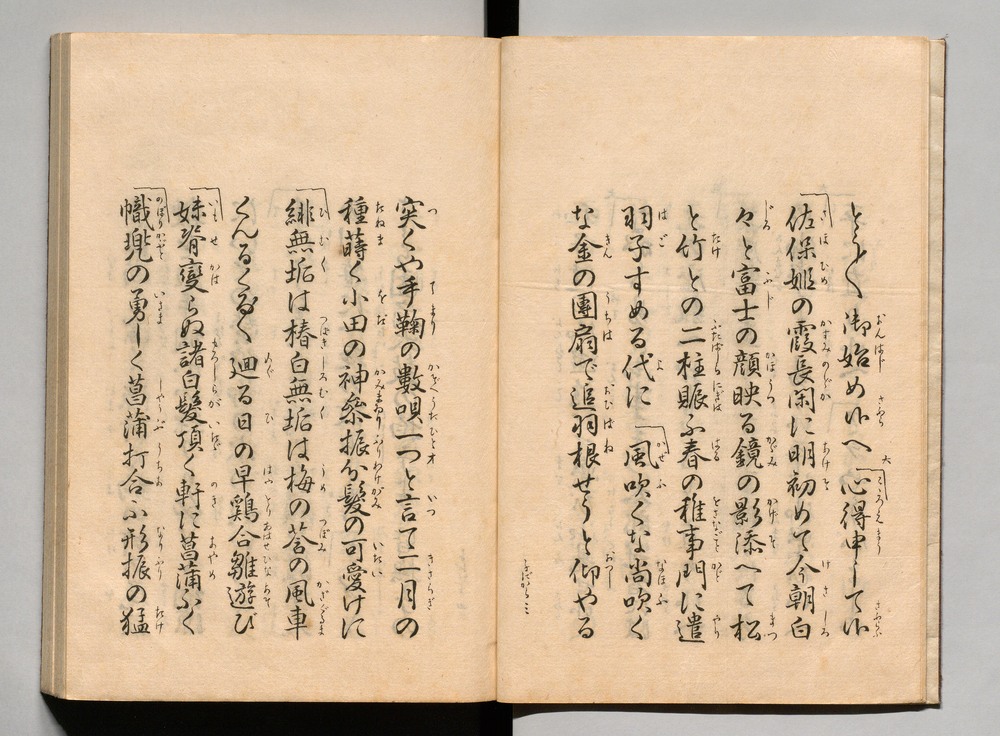 とく〳〵御始め候へ「心得申して候
「佐保姫の霞長閑に明初めて今朝白
々と富士の顔映る鏡の影添へて松
と竹との二柱賑ふ春の稚事門に遣
羽子すめる代に「風吹くな尚吹く
な金の團扇で追羽根せうと仰やる
突くや手鞠の數唄一つと言て二月の
種蒔く小田の神參振分髮の可愛けに
「緋無垢は椿白無垢は梅の莟の風車
くんるくるく廻る日の早鷄合雛遊び
「妹脊變らぬ諸白髮頂く軒に菖蒲ふく
「幟兜の勇しく菖蒲打合ふ形振の猛